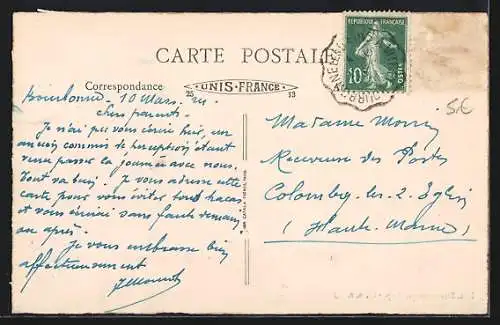 CARTE POSTALE
RÉPUBLIQUE FRANÇAISE
10
POSTES
Correspondance
UNIS-FRANCE
25
13
5€
10 Mars
Chers parents
Je n'ai pu vous écrire hier, un
ancien commis de réception s'étant
venu passer la journée avec nous.
Tout va bien. Je vous adresse cette
carte pour vous éviter tout tracas
et vous écrirai sans faute demain
ou après.
Je vous embrasse bien
affectueusement
Madame
Receveuse des Postes
Colombey-les-2 Eglises
(Haute-Marne)